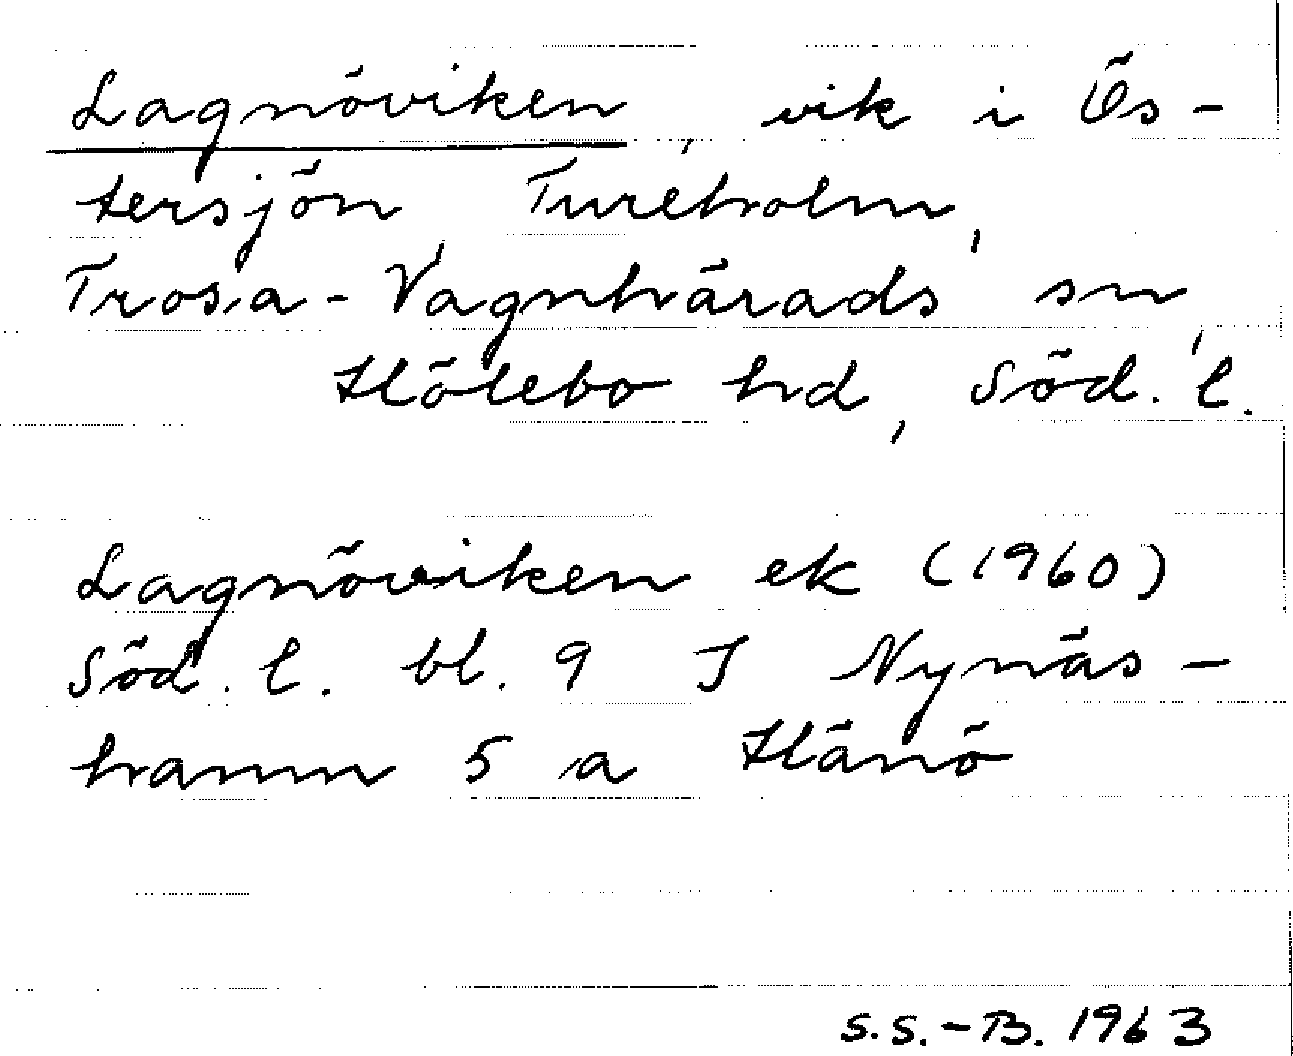 Lagnöviken, vik i Ös-
tersjön, Tureholm,
Trosa-Vagnhärads sn,
Hölebo hd, Söd. l.
Lagnöviken ek (1960)
Söd. l. bl. 9 I Nynäs-
hamn 5 a Hånö
S.S.-B. 1963